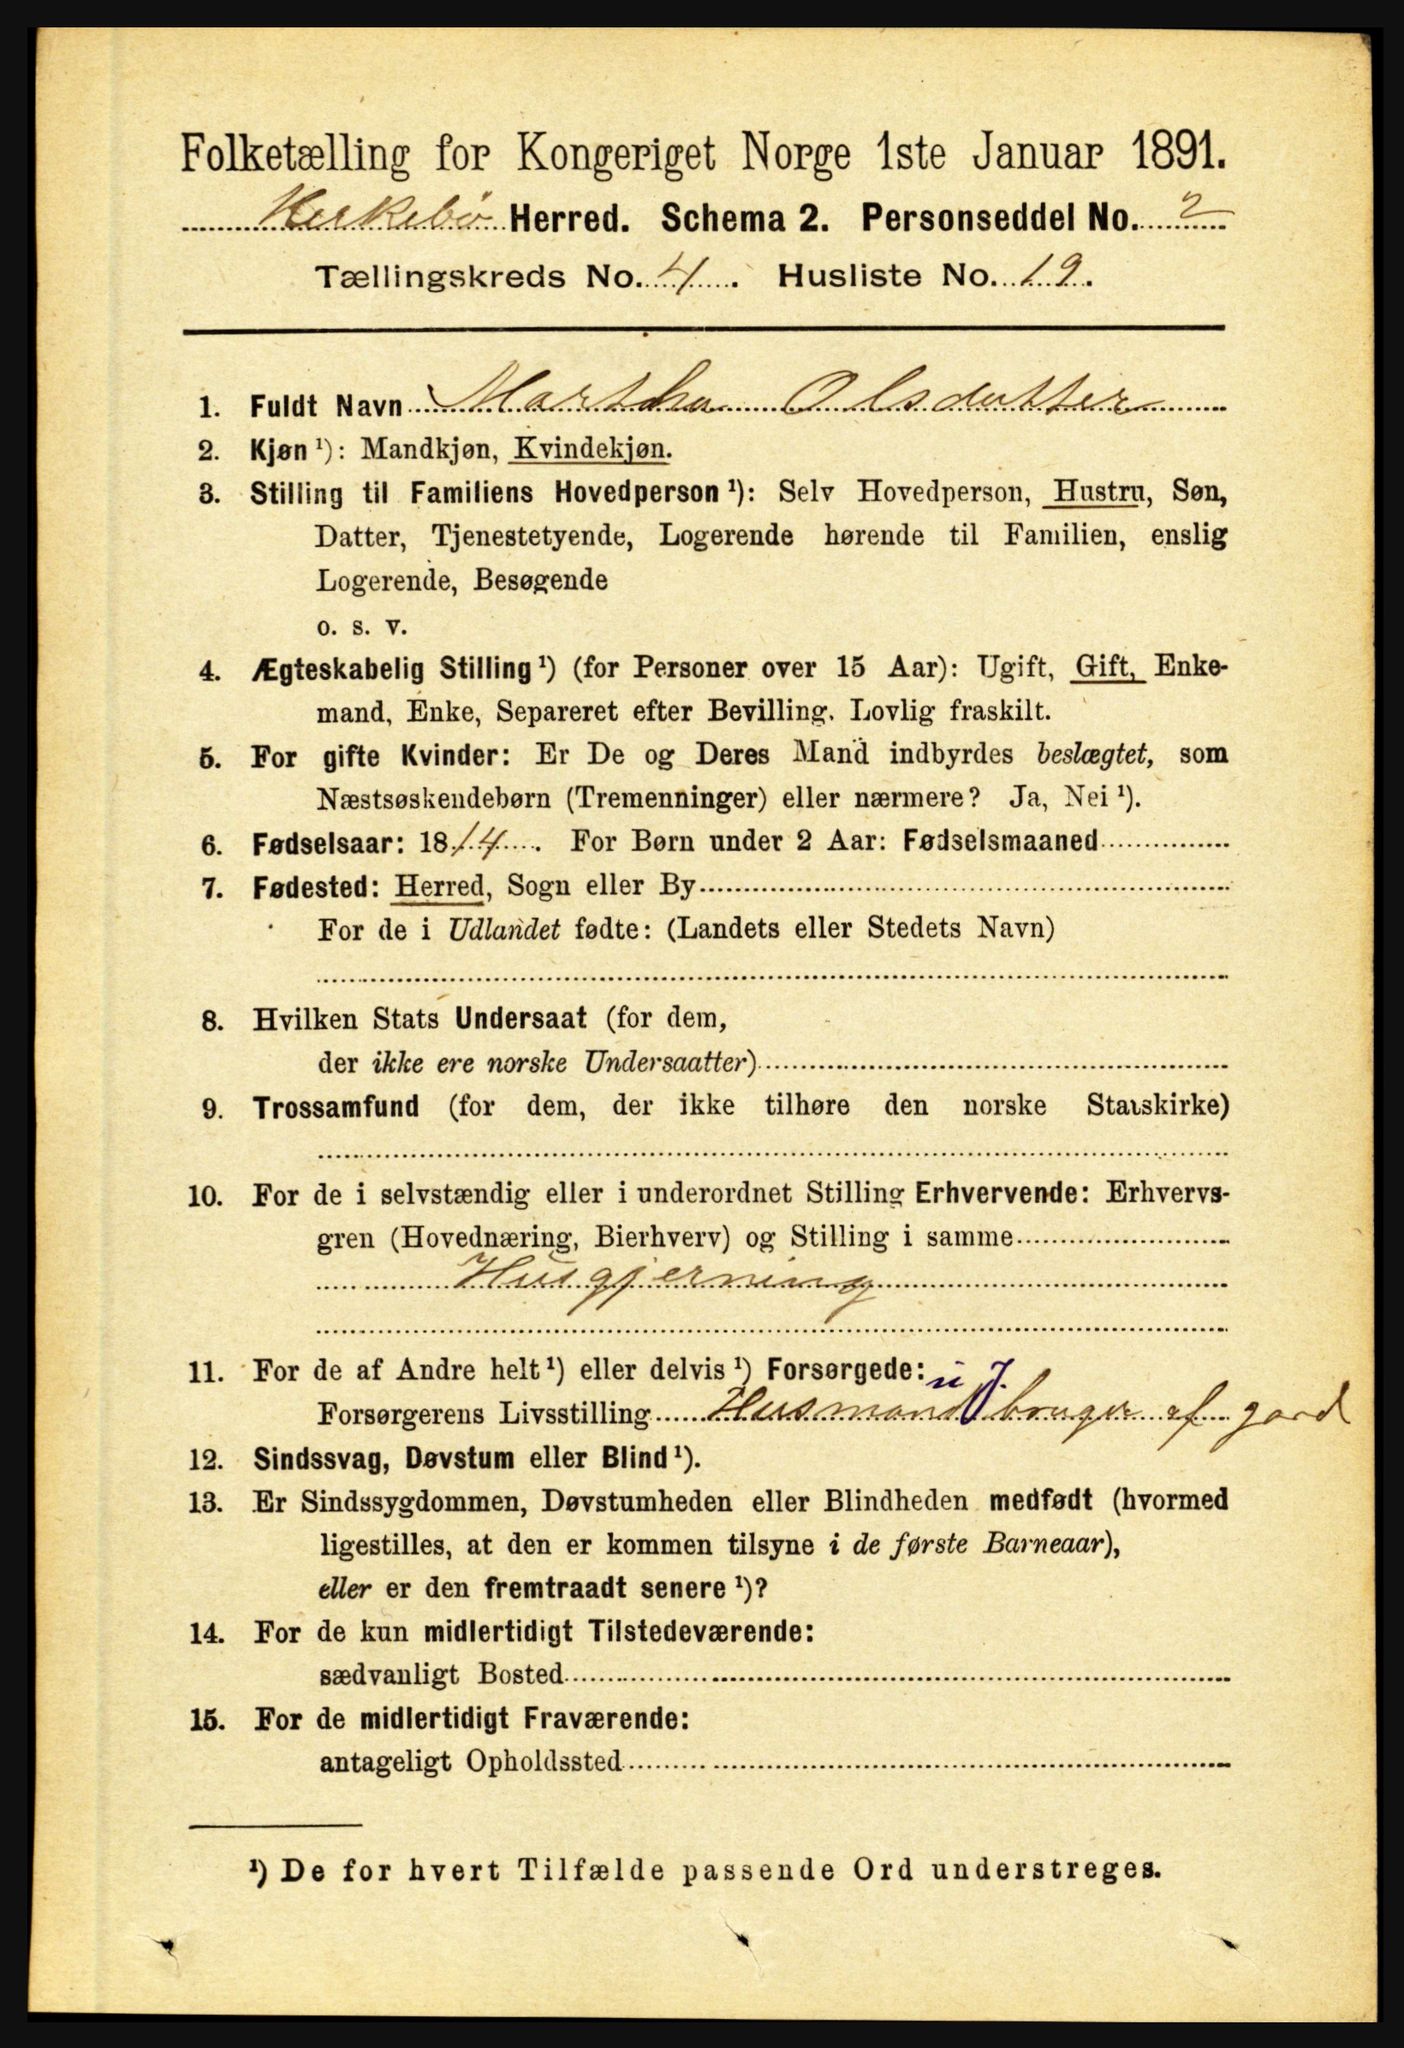 Folketælling for Kongeriget Norge 1ste Januar 1891.
Kirkebø Herred. Schema 2. Personseddel No. 2
Tællingskreds No. 4. Husliste No. 19.
1. Fuldt Navn Martha Olsdatter
2. Kjøn ¹): Mandkjøn, Kvindekjøn.
3. Stilling til Familiens Hovedperson ¹): Selv Hovedperson, Hustru, Søn,
Datter, Tjenestetyende, Logerende hørende til Familien, enslig
Logerende, Besøgende
o. s. v.
4. Ægteskabelig Stilling ¹) (for Personer over 15 Aar): Ugift, Gift, Enke-
mand, Enke, Separeret efter Bevilling. Lovlig fraskilt.
5. For gifte Kvinder: Er De og Deres Mand indbyrdes beslægtet, som
Næstsøskendebørn (Tremenninger) eller nærmere? Ja, Nei ¹).
6. Fødselsaar: 1814. For Børn under 2 Aar: Fødselsmaaned
7. Fødested: Herred, Sogn eller By
For de i Udlandet fødte: (Landets eller Stedets Navn)
8. Hvilken Stats Undersaat (for dem,
der ikke ere norske Undersaatter)
9. Trossamfund (for dem, der ikke tilhøre den norske Statskirke)
10. For de i selvstændig eller i underordnet Stilling Erhvervende: Erhvervs-
gren (Hovednæring, Bierhverv) og Stilling i samme
Husgjerning
11. For de af Andre helt ¹) eller delvis ¹) Forsørgede:
Forsørgerens Livsstilling Husmand bruger af gard
12. Sindssvag, Døvstum eller Blind ¹).
13. Er Sindssygdommen, Døvstumheden eller Blindheden medfødt (hvormed
ligestilles, at den er kommen tilsyne i de første Barneaar),
eller er den fremtraadt senere ¹)?
14. For de kun midlertidigt Tilstedeværende:
sædvanligt Bosted
15. For de midlertidigt Fraværende:
antageligt Opholdssted
¹) De for hvert Tilfælde passende Ord understreges.